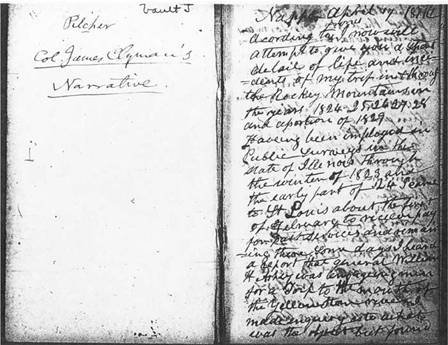 Vault J
Pilcher
Col. James Clyman's
Narrative.
Napa April 17 1871
Acording to
attempt to give you a short
detail of life and inci-
dents of my trip in & through
the Rockey Mountains in
the years 1824 25 26 27 28
and a portion of 1829
Haveing been employed in
Public Surveys in the
state of Illinois through
the winter of 1823 and
the early part of 24 I came
to St Louis about the first
of February to recieve pay
for past services and remain
ing there some days I heard
a report that general William
H Ashly was engageing men
for a trip to the mouth of
the Yellow Stone river I
made enquiry as to what
was the object but found